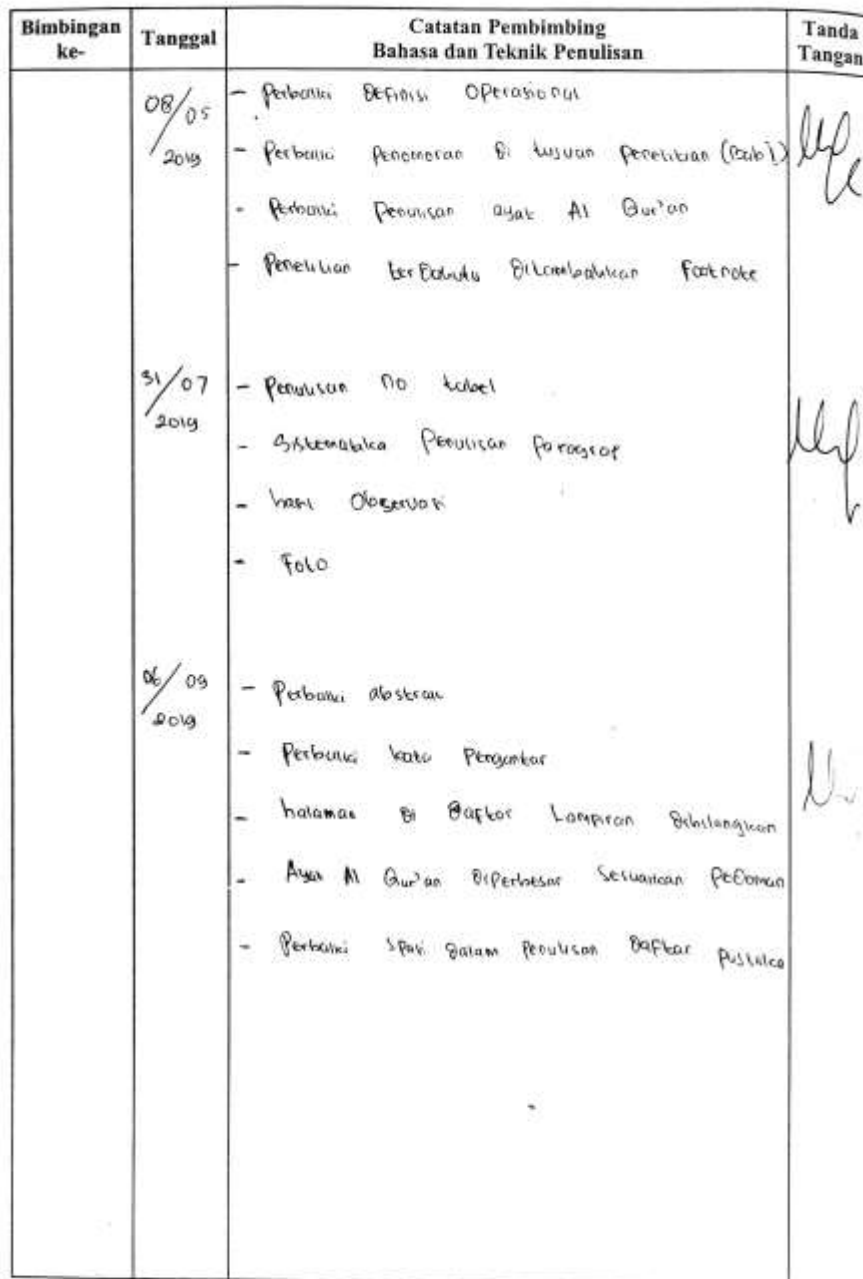 Bimbingan ke-
Tanggal
Catatan Pembimbing
Bahasa dan Teknik Penulisan
Tanda Tangan
08/05 2019
- Perbaiki Definisi Operasional
- Perbaiki Penomoran Di tujuan Penelitian (Bab I)
- Perbaiki Penulisan ayat Al Qur'an
- Penelitian terDahulu Ditambahkan Footnote
31/07 2019
- Penulisan no tabel
- Sistematika Penulisan Paragrap
- hasil Observasi
- Foto
06/09 2019
- Perbaiki abstrak
- Perbaiki kata Pengantar
- halaman Di Daftar Lampiran Dihilangkan
- Ayat Al Qur'an DiPerbesar Sesuaikan PeDoman
- Perbaiki Spasi Dalam Penulisan Daftar Pustaka